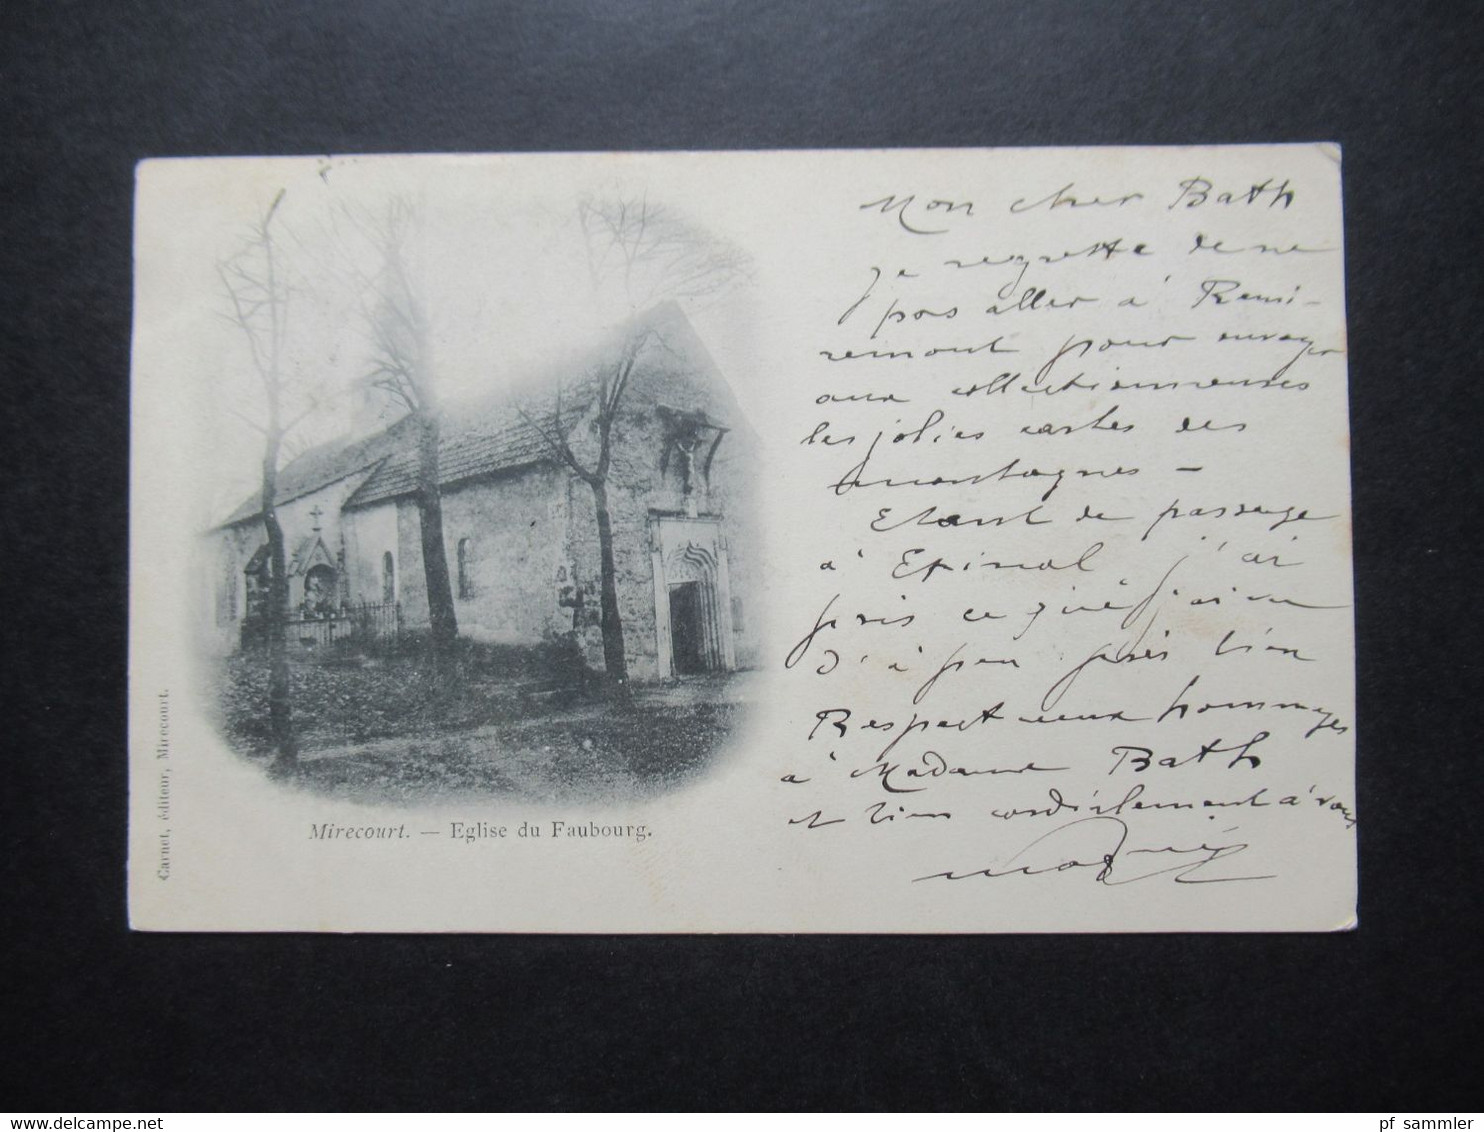 Mon cher Bath
je regrette de ne
pas aller à Remi-
remont pour envoyer
aux collectionneuses
les jolies cartes des
montagnes —
Etant de passage
à Epinal j'ai
pris ce que j'ai vu
d'à peu près bien
Respectueux hommages
à Madame Bath
et bien cordialement à vous
Mirecourt. — Eglise du Faubourg.
Carnet, éditeur, Mirecourt.
pf sammler